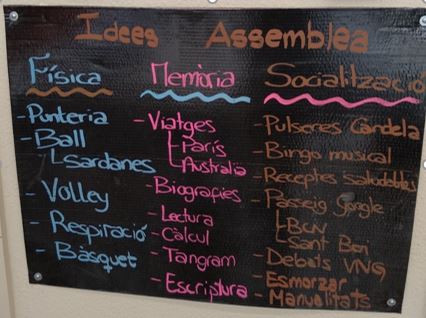 Idees Assemblea
Física
- Punteria
- Ball
Sardanes
- Volley
- Respiració
- Bàsquet
Memòria
- Viatges
París
Australia
- Biografies
- Lectura
- Càlcul
- Tangram
- Escriptura
Socialització
- Pulseres Candela
- Bingo musical
- Receptes Saludables
- Passeig google
BCN
Sant Boi
- Debats VNG
- Esmorzar
- Manualitats